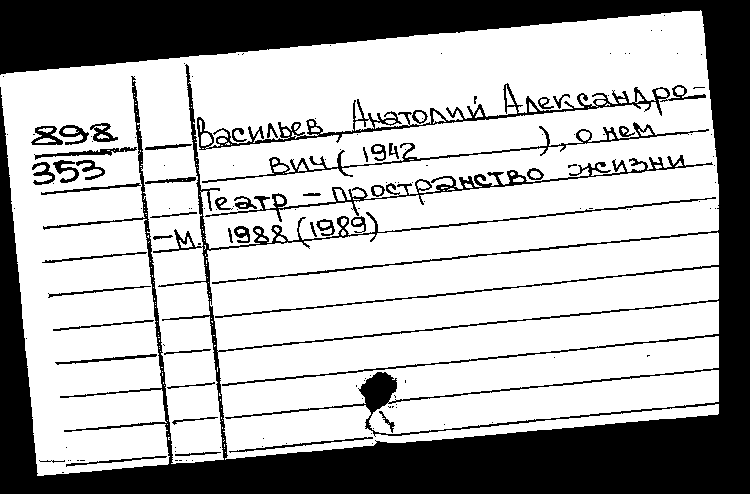 898
353
Васильев, Анатолий Александро-
вич ( 1942 ), о нем
Театр – пространство жизни
– М., 1988 (1989)